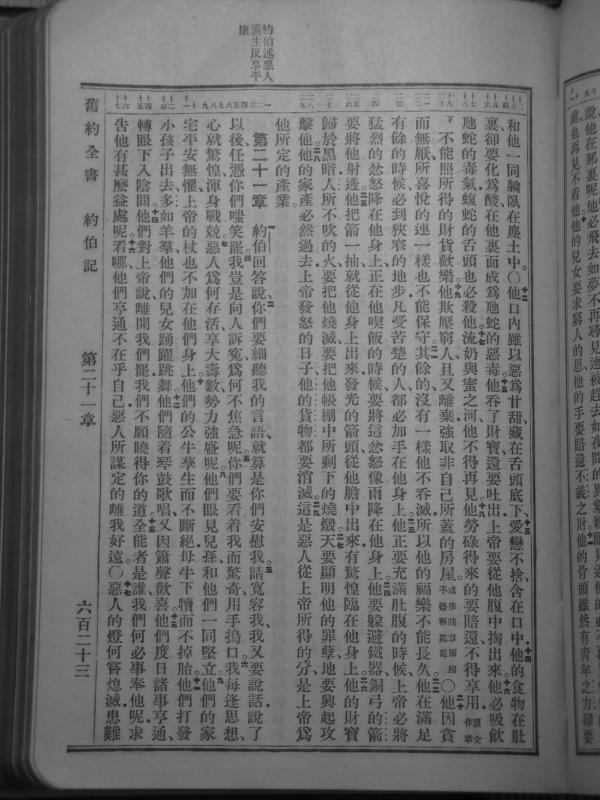 約伯述惡人
萬主反享平
康
和他一同躺臥在塵土中〇他口內雖以惡爲甘甜藏在舌頭底下愛戀不捨含在口中他的食物在肚
裏卻要化爲酸在他裏面成爲虺蛇的惡毒他吞了財寶還要吐出上帝要從他腹中掏出來他必吸飮
虺蛇的毒氣蝮蛇的舌頭也必殺他流奶與蜜之河他不得再見他勞碌得來的要賠還不得享用
不能照所得的財貨歡樂他欺壓窮人且又離棄強取非自己所蓋的房屋〇他因貪
而無厭所喜悅的連一樣也不能保守其餘的沒有一樣他不吞滅所以他的福樂不能長久他在滿足
有餘的時候必到狹窄的地步凡受苦楚的人都必加手在他身上他正要充滿肚腹的時候上帝必將
猛烈的忿怒降在他身上正在他喫飯的時候要將這忿怒像雨降在他身上他要躱避鐵器銅弓的箭
要將他射透他把箭一抽就從他身上出來發光的箭頭從他膽中出來有驚惶臨在他身上他的財寶
歸於黑暗人所不吹的火要把他燒滅要把他帳棚中所剩下的燒燬天要顯明他的罪孽地要興起攻
擊他他的家產必然過去上帝發怒的日子他的貨物都要消滅這是惡人從上帝所得的分是上帝爲
他所定的產業
第二十一章 約伯回答說你們要細聽我的言語就算是你們安慰我請寬容我我又要說話說了
以後任憑你們嗤笑罷我豈是向人訴冤爲何不焦急呢你們要看着我而驚奇用手摀口我每逢思想
心就驚惶渾身戰兢惡人爲何存活享大壽數勢力強盛呢他們眼見兒孫和他們一同堅立他們的家
宅平安無懼上帝的杖也不加在他們身上他們的公牛孳生而不斷絕母牛下犢而不掉胎他們打發
小孩子出去多如羊羣他們的兒女踴躍跳舞他們隨着琴鼓歌唱又因簫聲歡喜他們度日諸事亨通
轉眼下入陰間他們對上帝說離開我們罷我們不願曉得你的道全能者是誰我們何必事奉他呢求
告他有甚麼益處呢看哪他們亨通不在乎自己惡人所謀定的離我好遠〇惡人的燈何嘗熄滅患難
舊約全書 約伯記 第二十一章 六百二十三